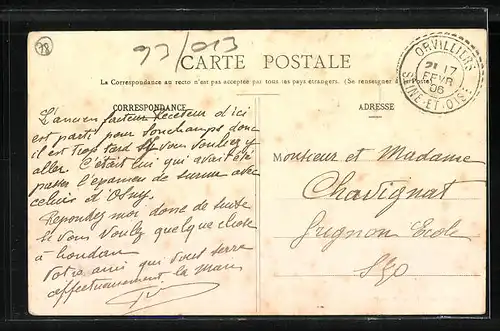 78
93/013
CARTE POSTALE
La Correspondance au recto n'est pas acceptée par tous les pays étrangers. (Se renseigner à la Poste)
ORVILLIERS
21 17
FEVR
06
SEINE-ET-OISE
CORRESPONDANCE
ADRESSE
L'ancien facteur Receteur d'ici
est parti pour Sonchamps donc
il est trop tard Si vous Vouliez y
aller. C'était lui qui avait été
passer l'éxamen de surnu avec
celui d'Osny.
Repondez moi donc de suite
Si vous Voulez quelque chose
à houdan
Votre ami qui vous serre
affectueusement la main
Monsieur et Madame
Chavignat
Grignon Ecole
S&O